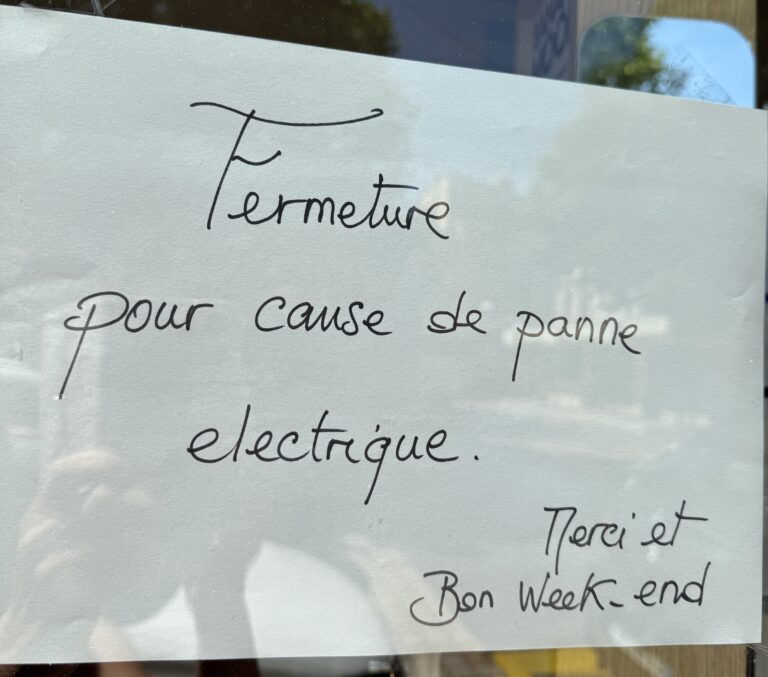 Fermeture
pour cause de panne
electrique.
Merci et
Bon Week-end